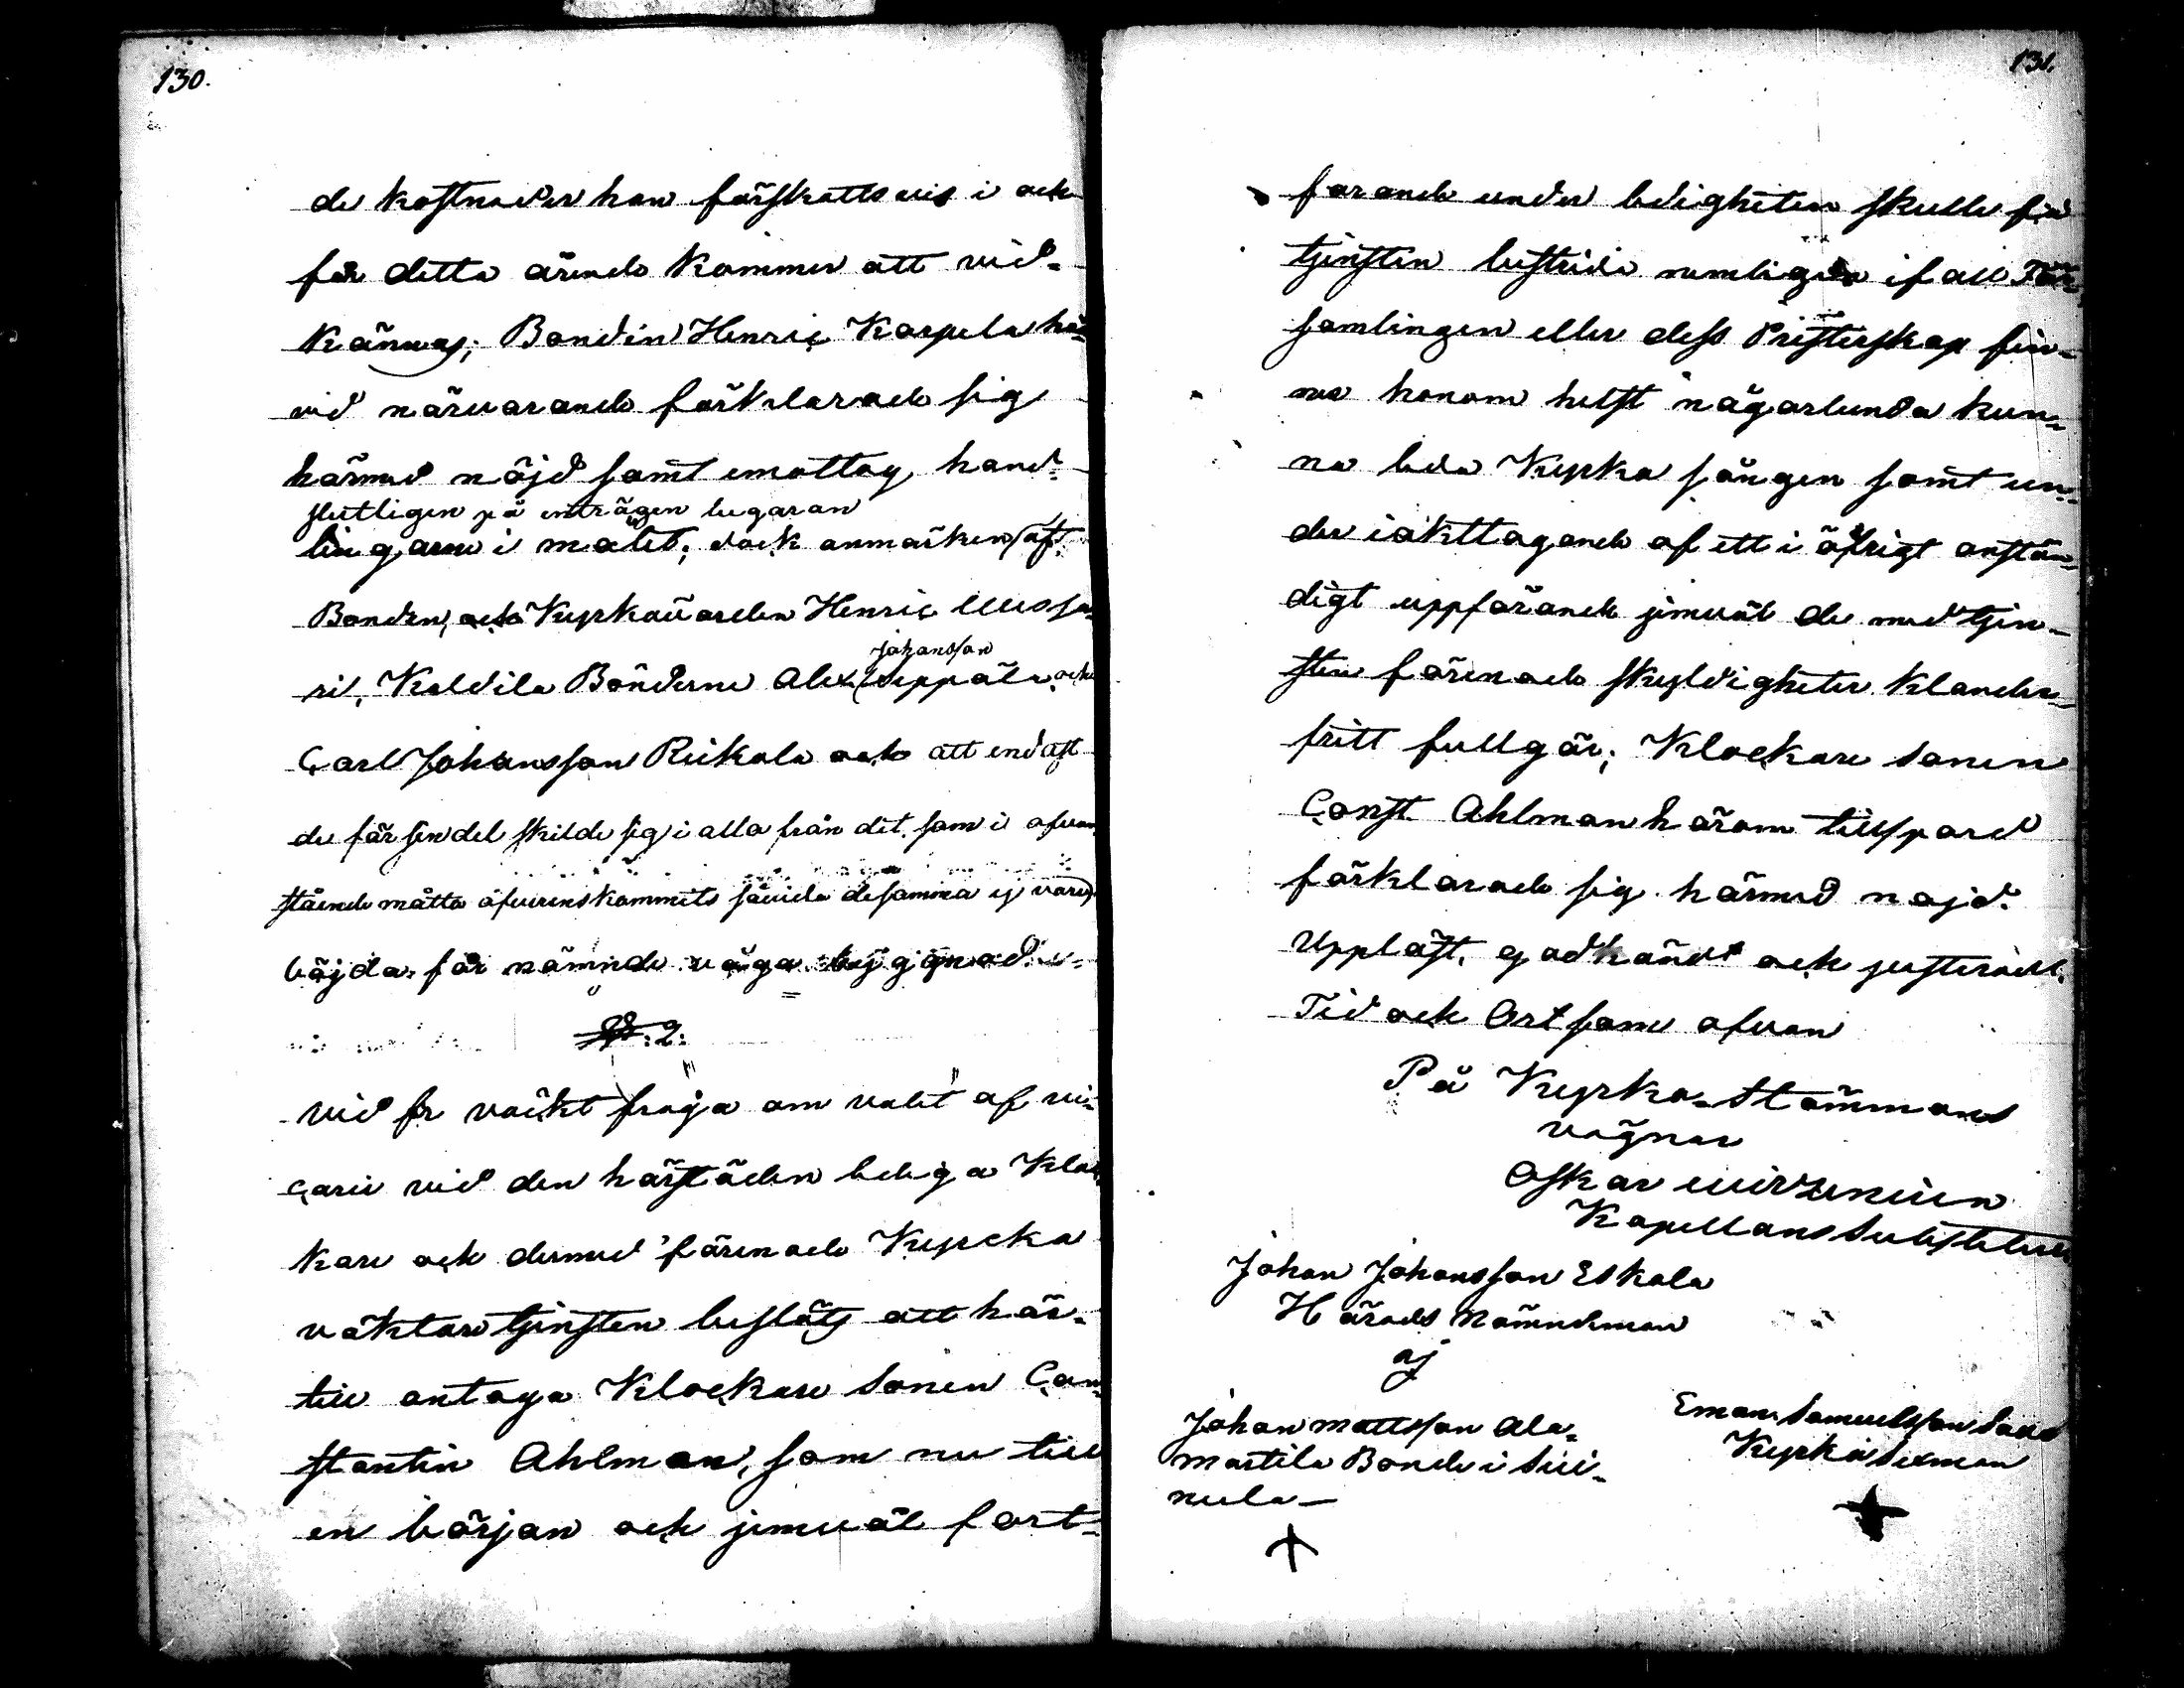 130.
de kostnader han förskottsvis i och
för detta ärende kommer att vid-
kännas; Bonden Henric Karpela här-
vid närvarande förklarade sig
härmed nöjd samt emottog hand-
slutligen på enträgen begäran
lingarne i målet; dock anmärken att
Bonden, och Kyrkovärden Henric Uusta-
ri, Kaldila Bönderne Alex Johansson Seppälä och
Carl Johansson Reikala och att endast
de för sin del skilde sig i alla från det, som i ofvan
stående måtto öfverenskommits såvida desamma ej varda
böjda för nämnde väga byggnad.
§§: 2:
Vid för väckt fråga om valet af vi-
carie vid den härstädes lediga Kloc-
kare och dermed förenade Kyrcko
väktare tjensten beslöts att här-
till antaga Klockare sonen Con-
stantin Ahlman, som nu till
en början och jemväl fort-
131.
farande under ledigheten skulle få
tjensten bestrida nemligen ifall För-
samlingen eller dess Presterskap fin-
na honom helst någorlunda kun-
na leda Kyrko sången samt un-
der iakttagande af ett i öfrigt anstän-
digt uppförande jemväl de med tjen-
sten förenade skyldigheter klander-
fritt fullgör; Klockare sonen
Const. Ahlman härom tillspord
förklarade sig härmed nöjd.
Uppläst, godkändt och justeradt.
Tid och Ort som ofvan
På Kyrko-Stämmans
vägnar
Oskar
Kapellans Substitut
Johan Johansson Eskola
Härads Nämndeman
Johan Mattsson Ala-
martila Bonde i Sui-
nula
Eman Samuelsson
Kyrko Sexman